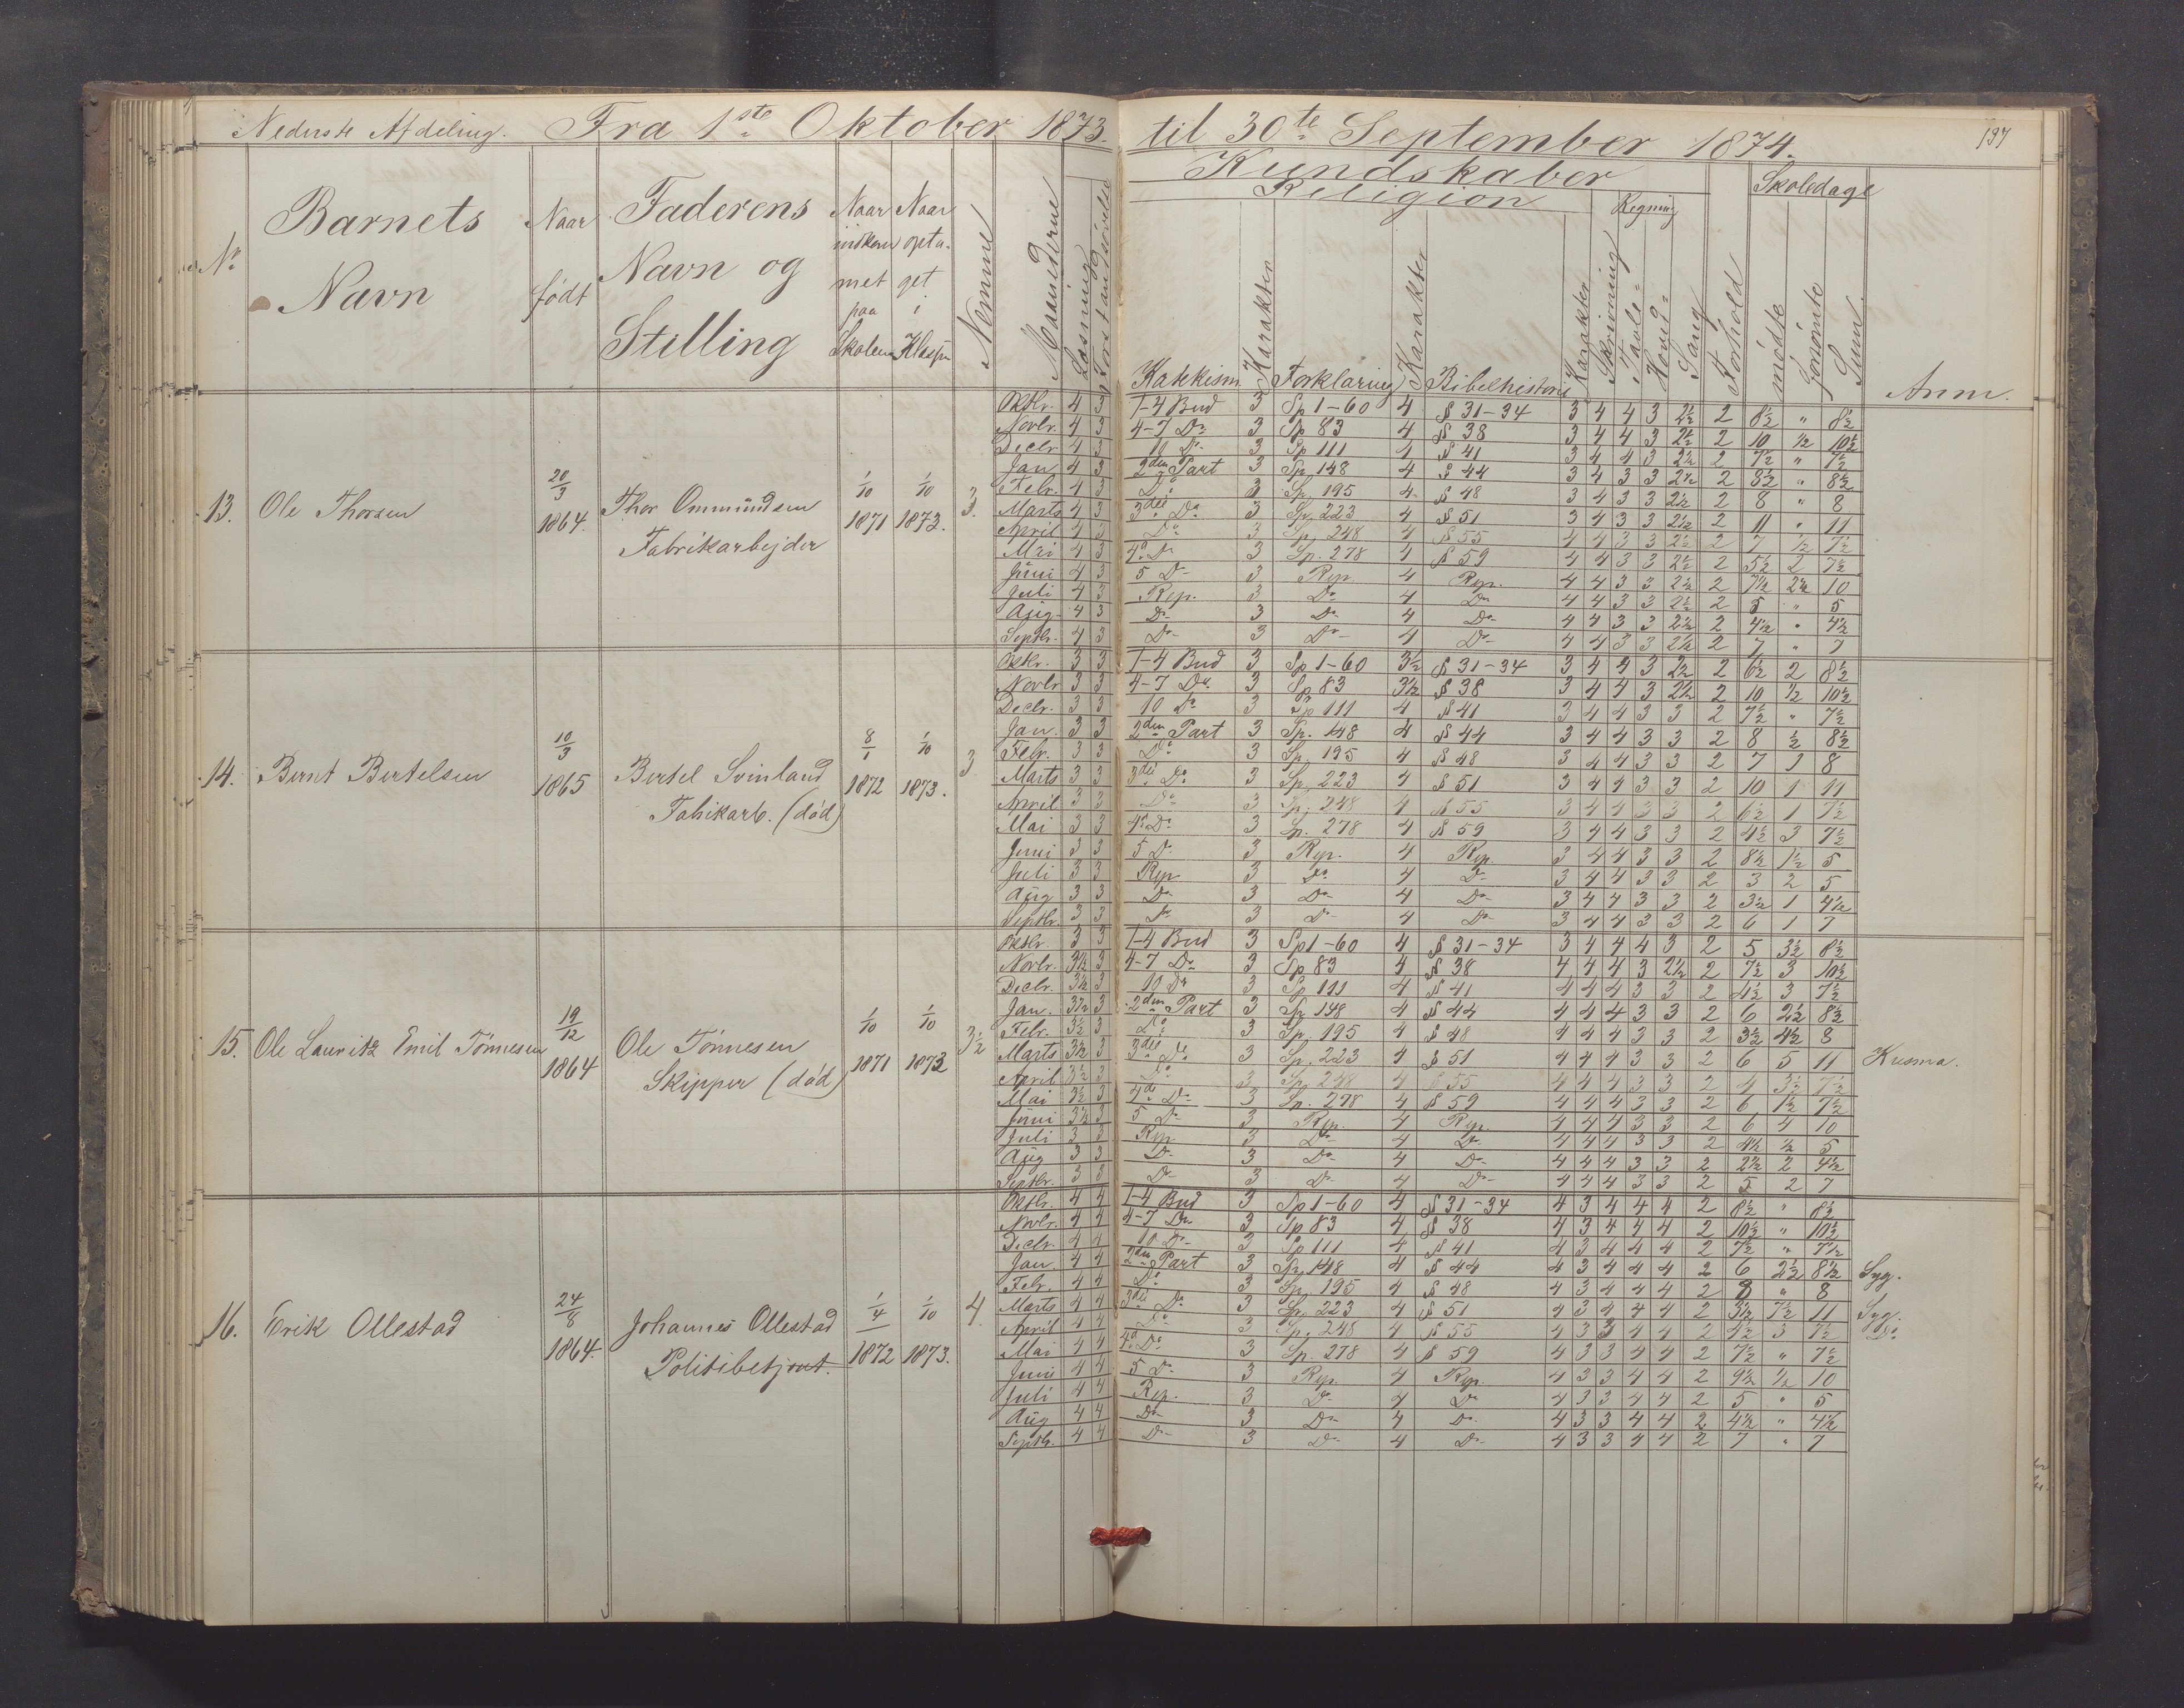 Nederste Afdeling. Fra 1ste Oktober 1873. til 30te September 1874. 197
Kundskaber
Religion Regning Skoledage
No Barnets Navn Naar født Faderens Navn og Stilling Naar indkommet paa Skolen Naar optaget i Klassen Nemme Maanederne Læsning Forstandsøvelse Katekism. Karakter Forklaring Karakter Bibelhistorie Karakter Skrivning Tavle= Hoved= Sang Forhold mødte forsømte Sum Anm.
13. Ole Thorsen 20/3 1864. Thor Ommundsen Fabrikarbejder 1/10 1871 1/10 1873. 3.
Oktbr. 4 3 1-4 Bud 3 Sp 1-60 4 § 31-34 3 4 4 3 2½ 2 8½ " 8½
Novbr. 4 3 4-7 Do 3 Sp 83 4 § 38 3 4 4 3 2½ 2 10 ½ 10½
Decbr. 4 3 10 Do 3 Sp 111 4 § 41 3 4 4 3 2½ 2 7½ " 7½
Jan. 4 3 2den Part 3 Sp. 148 4 § 44 3 4 3 3 2½ 2 8½ " 8½
Febr. 4 3 Do 3 Sp. 195 4 § 48 3 4 3 3 2½ 2 8 " 8
Marts 4 3 3die Do 3 Sp. 223 4 § 51 3 4 3 3 2½ 2 11 " 11
April 4 3 Do 3 Sp. 248 4 § 55 4 4 3 3 2½ 2 7 ½ 7½
Mai 4 3 4de Do 3 Sp. 278 4 § 59 4 4 3 3 2½ 2 5½ 2 7½
Juni 4 3 5 Do 3 Rep. 4 Rep. 4 4 3 3 2½ 2 7½ 2½ 10
Juli 4 3 Rep. 3 Do 4 Do 4 4 3 3 2½ 2 5 " 5
Aug. 4 3 Do 3 Do 4 Do 4 4 3 3 2½ 2 4½ " 4½
Septbr. 4 3 Do 3 Do 4 Do 4 4 3 3 2½ 2 7 " 7
14. Bernt Bertelsen 10/3 1865 Bertel Svinland Fabikarb. (død) 8/1 1872 1/10 1873. 3
Oktbr. 3 3 1-4 Bud 3 Sp 1-60 3½ § 31-34 3 4 4 3 2½ 2 6½ 2 8½
Novbr 3 3 4-7 Do 3 Sp 83 3½ § 38 3 4 4 3 2½ 2 10 ½ 10½
Decbr. 3 3 10 Do 3 Sp 111 4 § 41 3 4 4 3 3 2 7½ " 7½
Jan. 3 3 2den Part 3 Sp. 148 4 § 44 3 4 4 3 3 2 8 ½ 8½
Febr. 3 3 Do 3 Sp. 195 4 § 48 3 4 4 3 3 2 7 1 8
Marts 3 3 3die Do 3 Sp. 223 4 § 51 3 4 4 3 3 2 10 1 11
April 3 3 Do 3 Sp. 248 4 § 55 3 4 4 3 3 2 6½ 1 7½
Mai 3 3 4de Do 3 Sp. 278 4 § 59 3 4 4 3 3 2 4½ 3 7½
Juni 3 3 5 Do 3 Rep. 4 Rep. 3 4 4 3 3 2 8½ 1½ 5
Juli 3 3 Rep 3 Do 4 Do 3 4 4 3 3 2 3 2 5
Aug 3 3 Do 3 Do 4 Do 3 4 4 3 3 2 3½ 1 4½
Septbr. 3 3 Do 3 Do 4 Do 3 4 4 3 3 2 6 1 7
15. Ole Lauritz Emil Tönnesen 19/12 1864 Ole Tönnesen Skipper (død) 1/10 1871 1/10 1873 3½
Oktbr. 3 3 1-4 Bud 3 Sp 1-60 4 § 31-34 3 4 4 4 3 2 5 3½ 8½
Novbr. 3½ 3 4-7 Do 3 Sp 83 4 § 38 4 4 4 3 2½ 2 7½ 3 10½
Decbr. 3½ 3 10 Do 3 Sp 111 4 § 41 4 4 4 3 3 2 4½ 3 7½
Jan. 3½ 3 2den Part 3 Sp 148 4 § 44 4 4 4 3 3 2 6 2½ 8½
Febr. 3½ 3 Do 3 Sp. 195 4 § 48 4 4 4 3 3 2 3½ 4½ 8
Marts 3½ 3 3die Do 3 Sp. 223 4 § 51 4 4 4 3 3 2 6 5 11
April 3½ 3 Do 3 Sp. 248 4 § 55 4 4 4 3 3 2 4 3½ 7½
Mai 3½ 3 4de Do 3 Sp. 278 4 § 59 4 4 4 3 3 2 6 1½ 7½
Juni 3½ 3 5 Do 3 Rep. 4 Rep. 4 4 4 3 3 2 6 4 10
Juli 3 3 Rep. 3 Do 4 Do 4 4 4 3 3 2 4½ ½ 5
Aug 3 3 Do 3 Do 4 Do 4 4 4 3 3 2 2½ 2 4½
Septbr. 3 3 Do 3 Do 4 Do 4 4 4 3 3 2 5 2 7
16. Erik Ollestad 24/8 1864. Johannes Ollestad Politibetjent. 1/4 1872 1/10 1873. 4.
Oktbr. 4 4 1-4 Bud 3 Sp 1-60 4 § 31-34 4 3 4 4 4 2 8½ " 8½
Novbr. 4 4 4-7 Do 3 Sp 83 4 § 38 4 3 4 4 4 2 10½ " 10½
Decbr. 4 4 10 Do 3 Sp 111 4 § 41 4 3 4 4 4 2 7½ " 7½
Jan. 4 4 2den Part 3 Sp. 148 4 § 44 4 3 4 4 4 2 6 2½ 8½ Syg.
Febr. 4 4 Do 3 Sp. 195 4 § 48 4 3 4 4 4 2 8 " 8
Marts 4 4 3die Do 3 Sp. 223 4 § 51 4 3 4 4 4 2 3½ 7½ 11 Syg.
April 4 4 Do 3 Sp. 248 4 § 55 4 3 3 4 4 2 4½ 3 7½ Do
Mai 4 4 4de Do 3 Sp 278 4 § 59 4 3 3 4 4 2 7½ " 7½
Juni 4 4 5 Do 3 Rep. 4 Rep. 4 3 3 4 4 2 9½ ½ 10
Juli 4 4 Rep. 3 Do 4 Do 4 3 3 4 4 2 5 " 5
Aug 4 4 Do 3 Do 4 Do 4 3 3 4 4 2 4½ " 4½
Septbr. 4 4 Do 3 Do 4 Do 4 3 3 4 4 2 7 " 7